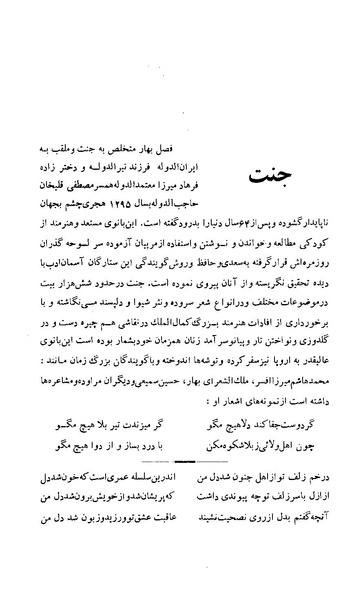 جنت
فصل بهار متخلص به جنت وملقب به
ایران‌الدوله فرزند نیرالدوله و دختر زاده
فرهاد میرزا معتمدالدوله همسر مصطفی قلیخان
حاجب‌الدوله بسال ۱۲۹۵ هجری چشم بجهان
ناپایدار گشوده و پس از ۶۴ سال دنیا را بدرود گفته است. این بانوی مستعد و هنرمند از
کودکی مطالعه و خواندن و نوشتن واستفاده از مربیان آزموده سر لوحه گذران
روزمره‌اش قرار گرفته به سعدی و حافظ وروش گویندگی این ستارگان آسمان ادب با
دیده تحقیق نگریسته و از آنان پیروی نموده است. جنت در حدود شش هزار بیت
در موضوعات مختلف و در انواع شعر سروده و نثر شیوا و دلپسند می‌نگاشته و با
برخورداری از افادات هنرمند بزرگ کمال‌الملک در نقاشی هم چیره دست و در
گلدوزی و نواختن تار و پیانو سرآمد زنان همزمان خود بشمار بوده است این بانوی
عالیقدر به اروپا نیز سفر کرده و توشه‌ها اندوخته و با گویندگان بزرگ زمان مانند :
محمد هاشم میرزا افسر، ملک‌الشعرای بهار، حسین سمیعی و دیگران مراوده و مشاعره‌ها
داشته است از نمونه‌های اشعار او :
گر دوست جفا کند دلا هیچ مگو گر میزندت تیر بلا هیچ مگو
چون اهل ولائی ز بلا شکوه مکن با درد بساز و از دوا هیچ مگو
در خم زلف تو از اهل جنون شد دل من اندرین سلسله عمری است که خون شد دل
از ازل با سر زلف تو چه پیوندی داشت که پریشان شد و از خویش برون شد دل من
آنچه گفتم بدل از روی نصحیت نشنید عاقبت عشق تو ورزید و زبون شد دل من